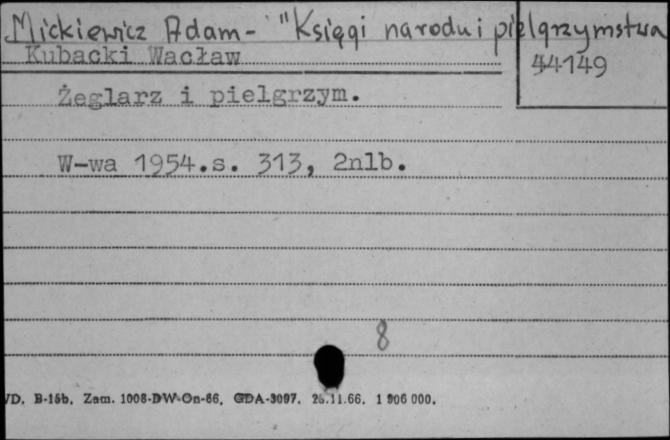 Mickiewicz Adam - "Księgi narodu i pielgrzymstwa
Kubacki Wacław
44149
Żeglarz i pielgrzym.
W-wa 1954.s. 313, 2nlb.
8
/D. B-15b. Zam. 1008-DW-On-66. GDA-3097. 28.11.66. 1 906 000.